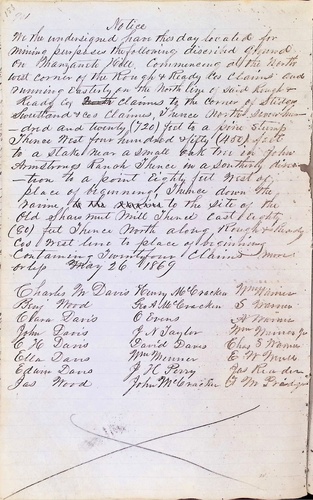 Notice
We the undersigned have this day located for
mining purposes the following discribed ground
On Manzaneta Hill, Commencing at the North
west corner of the Rough & Ready Cos Claims and
running Easterly on the North line of said Rough &
Ready Co claims to the corner of
Sweetland & Cos Claims, Thence North Seven hun-
-dred and twenty (720) feet to a pine Stump
Thence West four hundred & fifty (450) feet
to a Stake near a small oak on John
Armstrongs Ranch Thence in a Southerly direc-
-tion to a point Eighty feet West of
place of beginning, Thence down the
ravine to the site of the
Old Sharomut Mill Thence East Eighty
(80) feet Thence North along Rough & Ready
Cos West line to place of beginning
Containing Twenty four Claims more
or less May 26 1869
Charles W Davis Henry McCracken Wm
Benj Wood Geo A McCracken S Warner
Clara Davis C Evens A Warner
John Davis J N Taylor Wm Warner Jr
C H Davis David Davis Chas S Warner
Ella Davis Wm E W
Edwin Davis J H Perry Jas Reader
Jas Wood John McCracken F M